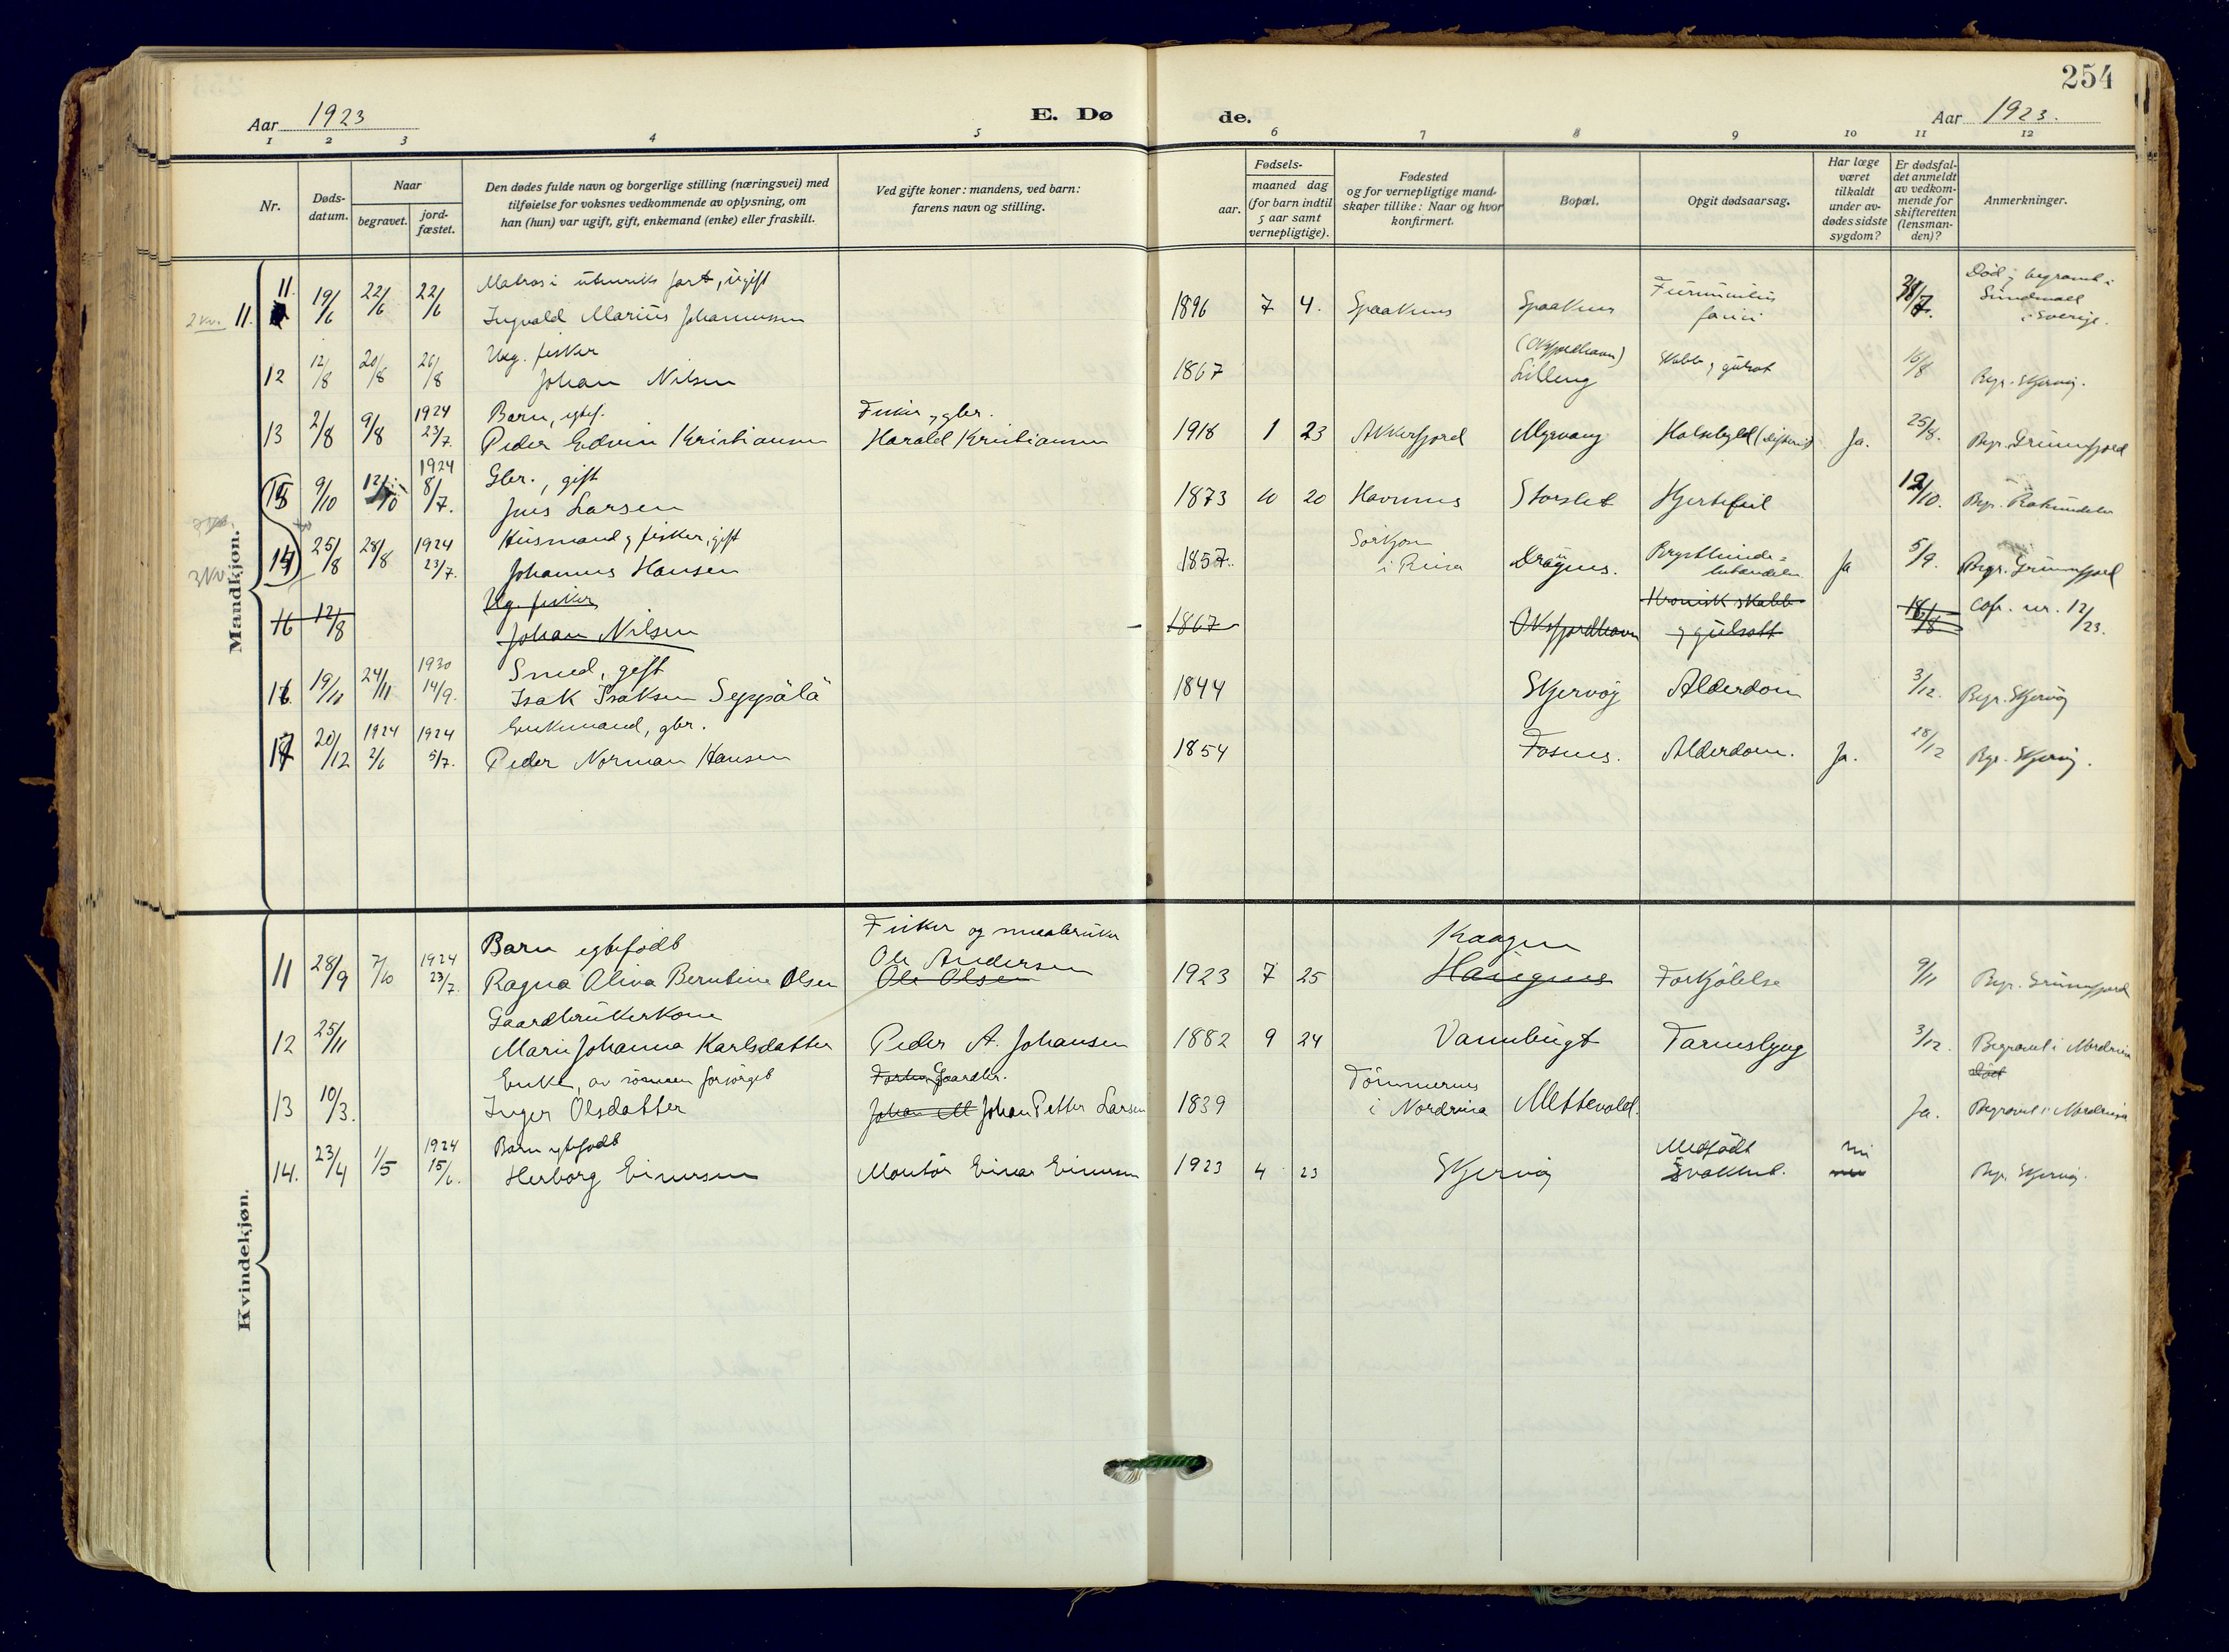 254
Aar 1923
E. Dø
de.
Aar 1923.
1 2 3 4 5 6 7 8 9 10 11 12
Nr.
Døds-
datum.
Naar
begravet.
jord-
fæstet.
Den dødes fulde navn og borgerlige stilling (næringsvei) med
tilføielse for voksnes vedkommende av oplysning, om
han (hun) var ugift, gift, enkemand (enke) eller fraskilt.
Ved gifte koner: mandens, ved barn:
farens navn og stilling.
Fødsels-
aar.
maaned dag
(for barn indtil
5 aar samt
vernepligtige).
Fødested
og for vernepligtige mand-
skaper tillike: Naar og hvor
konfirmert.
Bopæl.
Opgit dødsaarsag.
Har læge
været
tilkaldt
under av-
dødes sidste
sygdom?
Er dødsfal-
det anmeldt
av vedkom-
mende for
skifteretten
(lensman-
den)?
Anmerkninger.
Mandkjøn.
2 kv. 11.
11. 19/6 22/6 22/6 Matros i utenriks fart, ugift
Ingvald Marius Johannessen 1896 7 4. Spaaknes Spaaknes
Død og begravet i
Sundsvall
i Sverige.
12 12/8 20/8 26/8 Ung. fisker
Johan Nilsen 1867 (Oksfjordhavn)
Lilleng Kolbb og gulsot 16/8 Begr. Skjervøy.
13 2/8 9/8 1924 23/7. Barn, egtef.
Peder Edvin Kristiansen Fisker og gbr.
Harald Kristiansen 1918 1 23 Akkerfjord Myrvang Halsebyld (difterit) Ja. 25/8. Begr. Grunnfjord
15 9/10 12/10 1924 8/7. Gbr., gift
Jens Larsen 1873 10 20 Havnnes Storslet Hjertefeil 12/10. Begr. Rotsundelv
14 25/8 28/8 1924 23/7. Husmand og fisker, gift
Johannes Hansen 1857. Sørkjosen
i Reisa Ja 5/9. Begr. Grunnfjord
16 12/8 Ug. fisker
Johan Nilsen 1867 Oksfjordhavn Kronisk
og gulsott 16/8 Cfr. nr. 12/23.
16. 19/11 24/11 1930 14/9. Smed, gift
Isak Isaksen Seppälä 1844 Skjervøy Alderdom 3/12. Begr. Skjervøy
17 20/12 1924 2/6 1924 5/7. Enkemand, gbr.
Peder Norman Hansen 1854 Fosnes. Alderdom. Ja. 28/12 Begr. Skjervøy.
Kvindekjøn.
11 28/9 7/10 1924 23/7. Barn egtefødt
Ragna Alina Berntine Olsen Fisker og smaabruker
Ole Andersen
Ole Olsen 1923 7 25 Kaagen
Haugnes Forkjølelse 9/11 Begr. Grunnfjord
12 25/11 Gaardbrukerkone
Marie Johanna Karlsdatter Peder A. Johansen 1882 9 24 Vannbugt Tarmslyng 3/12. Begravet i Nordreisa
13 10/3. Enke, av sønnen forsørget
Inger Olsdatter Gaardbr.
Johan M Johan Petter Larsen 1839 Tømmernes
i Nordreisa Mettevold. Ja. død
Begravet i Nordreisa
14. 23/4 1/5 1924 15/6. Barn egtefødt
Herborg Einersen Montør Einar Einersen 1923 4 23 Skjervøy Medfødt
Svakhet. nei Begr. Skjervøy.